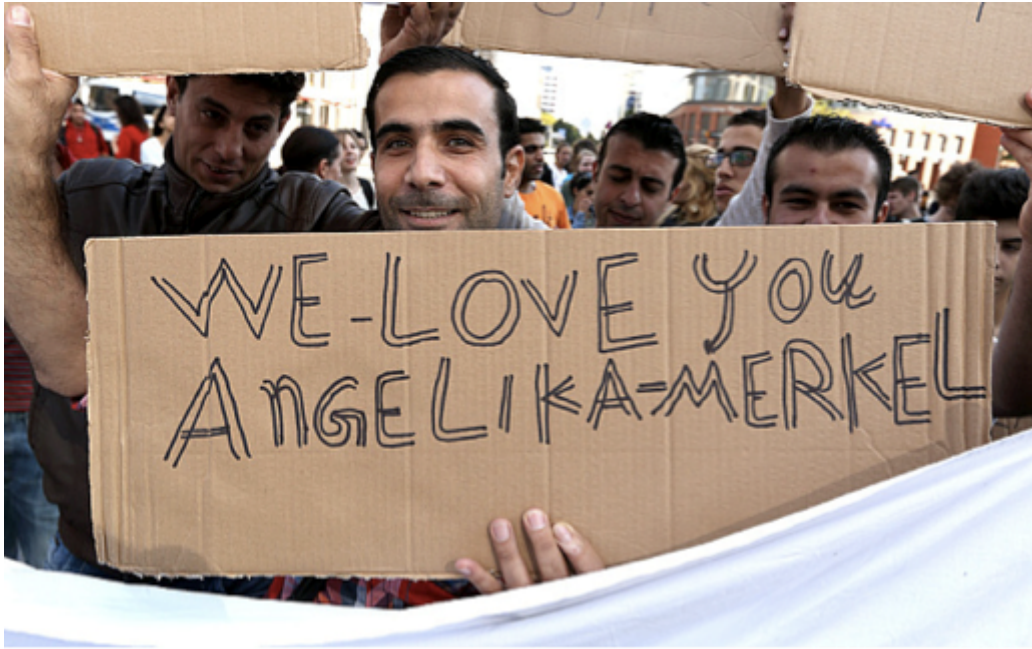 WE-LOVE YOU
ANGELIKA-MERKEL